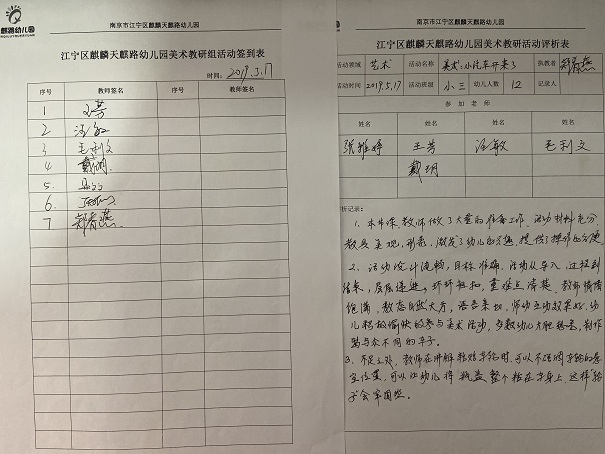 麒麟幼儿园
南京市江宁区麒麟天麒路幼儿园
江宁区麒麟天麒路幼儿园美术教研组活动签到表
时间：2019.3.17
序号 教师签名 序号 教师签名
1 王芳
2 汪敏
3 毛利文
4 戴玥
5.
6.
7 郑香燕
南京市江宁区麒麟天麒路幼儿园
江宁区麒麟天麒路幼儿园美术教研活动评析表
活动领域 艺术 活动名称 美术：小汽车开来了 执教者 郑香燕
活动时间 2019.5.17 活动班级 小三 幼儿人数 12 记录人
参加老师
姓名 姓名 姓名 姓名
张雅婷 王芳 汪敏 毛利文
戴玥
评析记录：
1、本节课，教师做了大量的准备工作，活动材料充分
教具美观，形象，激发了幼儿的兴趣，提供了操作的方便
2、活动设计流畅，目标准确，活动从导入，过程到
结束，层层递进，环环相扣，重难点落实，教师情绪
饱满，教态自然大方，语言亲切，师幼互动效果好，幼
儿积极愉快的参与美术活动，多数幼儿大胆想象，制作
与众不同的车子。
3、不足之处，教师在讲解粘贴车轮时，可以不强调车轮的固
定位置，可以让幼儿将瓶盖整个粘在车身上，这样"轮
子"会牢固些。